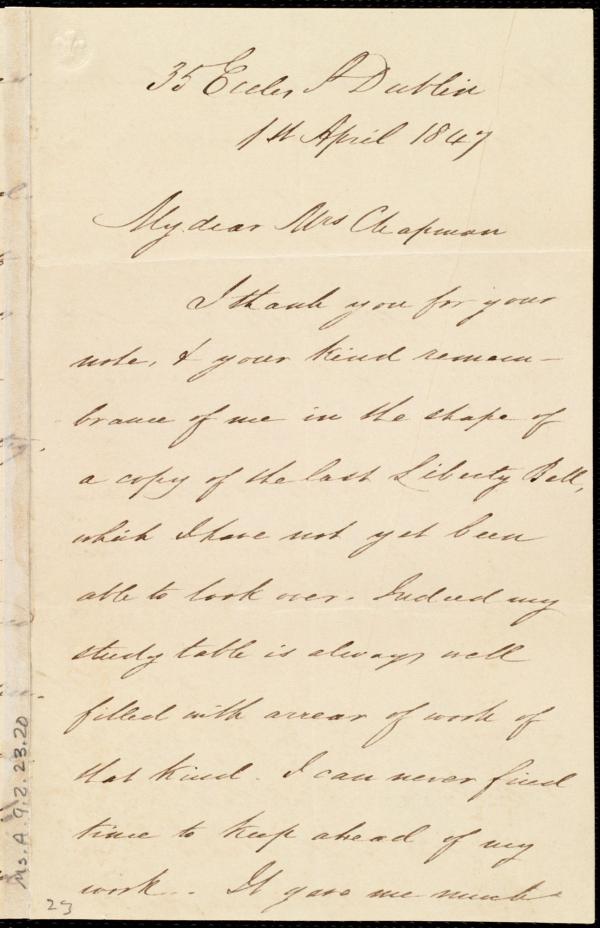 35 Eccles St Dublin
1st April 1847
My dear Mrs Chapman
I thank you for your
note, & your kind remem-
brance of me in the shape of
a copy of the last Liberty Bell,
which I have not yet been
able to look over. Indeed my
study table is always well
filled with arrear of work of
that kind. I can never find
time to keep ahead of my
work. It gave me much
Ms. A. 9.2.23.20
23